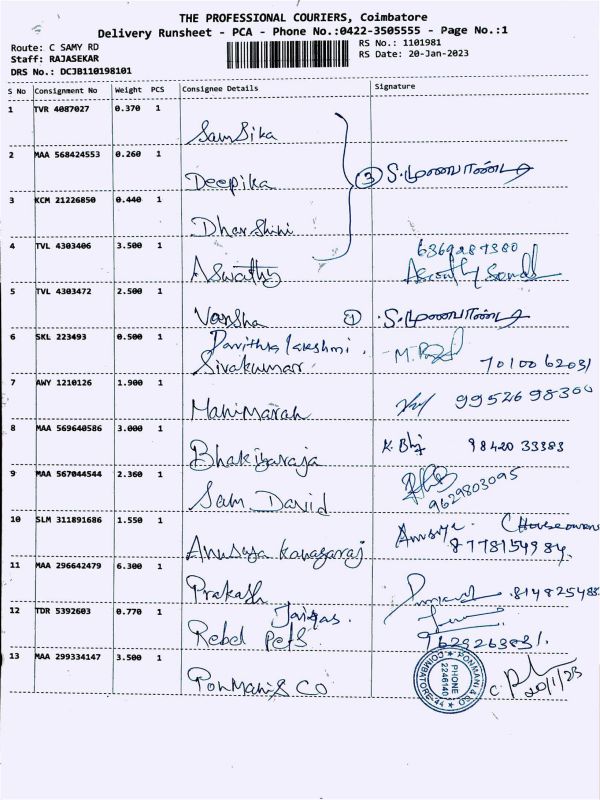 THE PROFESSIONAL COURIERS, Coimbatore
Delivery Runsheet - PCA - Phone No.:0422-3505555 - Page No.:1
Route: C SAMY RD
RS No.: 1101981
Staff: RAJASEKAR
RS Date: 20-Jan-2023
DRS No.: DCJB110198101
S No Consignment No Weight PCS Consignee Details Signature
1 TVR 4087027 0.370 1
Samsika
2 MAA 568424553 0.260 1
Deepika 3 S.முணியாண்டி
3 KCM 21226850 0.440 1
Dharshini
4 TVL 4303406 3.500 1
6369287380
Aswathy
5 TVL 4303472 2.500 1
Varsha 1 S.முணியாண்டி
6 SKL 223493 0.500 1
Pavithra lakshmi
Sivakumar 7010062031
7 AWY 1210126 1.900 1
Manimaran 9952698300
8 MAA 569640586 3.000 1
Bhakiyaraja 98420 33383
9 MAA 567044544 2.360 1
Sam David 9629803095
10 SLM 311891686 1.550 1
Anusuya Kanagaraj Anusya
8778154984
11 MAA 296642479 6.300 1
Prakash
12 TDR 5392603 0.770 1
Rebel Pets 7629263831
13 MAA 299334147 3.500 1
Ponmani & Co
PONMANI & CO
COIMBATORE-44
PHONE
2246140
20/1/23